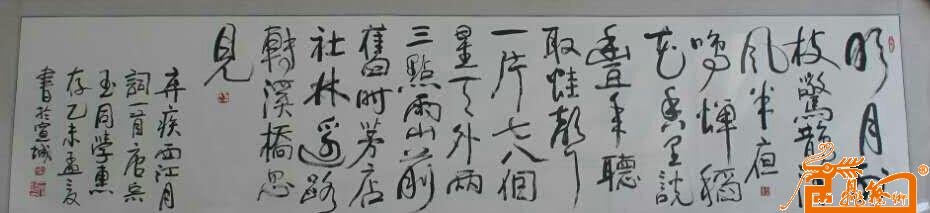 明月別
枝驚鵲
風半夜
鳴蟬稻
花香里說
豐年聽
取蛙聲
一片七八個
星天外兩
三點雨山前
舊時茅店
社林邊路
轉溪橋忽
見
弃疾西江月
詞一首唐兵
玉同學惠
存乙未孟夏
書於宣城